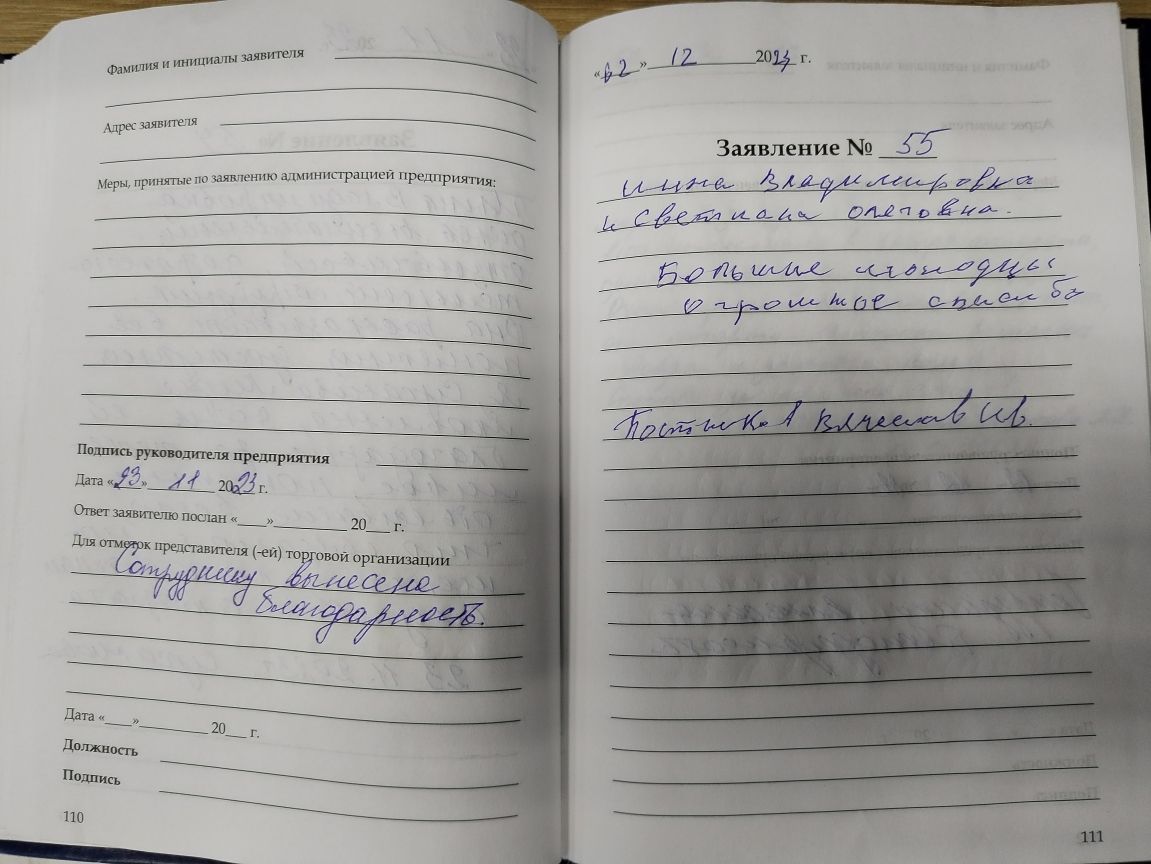 Фамилия и инициалы заявителя
Адрес заявителя
Меры, принятые по заявлению администрацией предприятия:
Подпись руководителя предприятия
Дата «23» 11 2023 г.
Ответ заявителю послан «___» 20___ г.
Для отметок представителя (-ей) торговой организации
Сотруднику вынесена
благодарность.
Дата «___» 20___ г.
Должность
Подпись
110
12 2023 г.
Заявление № 55
Инна Владимировна
и Светлана Олеговна.
Большие молодцы
огромное спасибо
Вячеслав Ив.
111